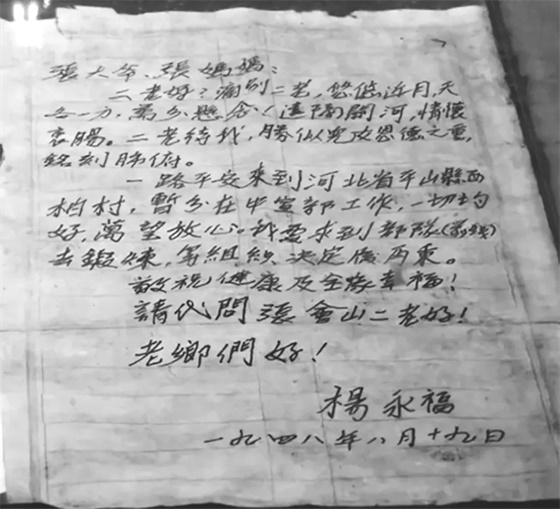 張大爷、張媽媽：
二老好？痛别二老，悠悠近月，天
各一方，萬分懸念！遠隔關河，情懷
衷腸。二老待我，勝似児女恩德之重，
銘刻肺俯。
一路平安來到河北省平山縣西
柏村，暫分在中宣部工作，一切均
好，萬望放心。我要求到部隊（前线）
去鍛煉，等組织决定後再禀。
敬祝健康及全家幸福！
請代問張會山二老好！
老鄉們好！
楊永福
一九四八年八月十九日